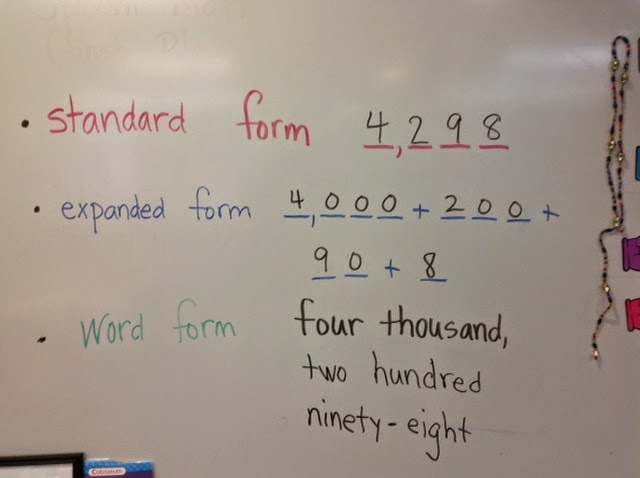 • standard form 4,298
• expanded form 4,000 + 200 +
90 + 8
• word form four thousand,
two hundred
ninety-eight
Colosseum